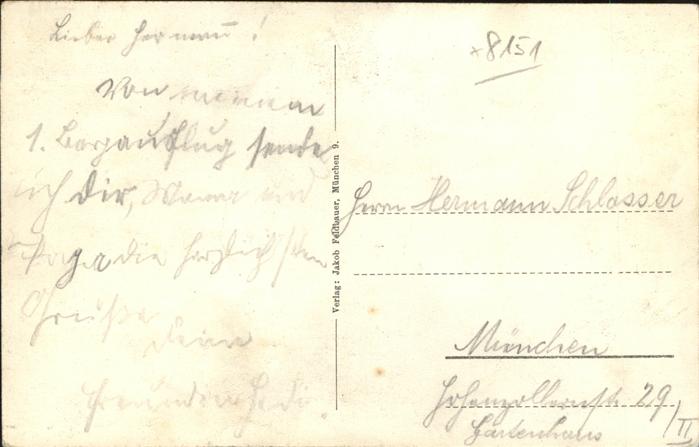 Lieber Hermann!
Von meinem
1. Bergausflug sende
ich Dir, Mama und
Papa die herzlichsten
Grüße
Deine
Freundin Hedi.
Verlag: Jakob Feldbauer, München 9.
*8151
Herrn Hermann Schlosser
München
Hohenzollernstr. 29/II
Gartenhaus